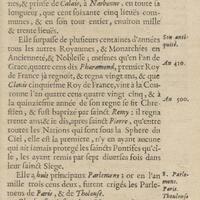 tes, & prise de Calais, à Narbonne, en toute sa
longueur, que cent soixante cinq lieuës com-
munes, & en son tour entier, environ mille
& trente lieuës.
Elle surpasse de plusieurs centaines d'années Son anti-
tous les autres Royaumes, & Monarchies en quité.
Ancienneté, & Noblesse; mesmes qu'en l'an de
Grace, quatre cens dix Pharamond, premier Roy An 410.
de France jà regnoit, & regna vingt ans, & que
Clovis cinquiéme Roy de France, vint à la Cou-
ronne l'an quatre cens quatre vingt cinq, & à
la quinziéme année de son regne se fit Chre- An 500.
stien, & fut baptisé par sainct Remy: il regna
trente ans; & se dit, apres sainct Pierre, qu'entre
toutes les Nations qui sont sous la Sphere du
Ciel, elle est la premiere, n'y en ayant aucune
qui ait jamais protegé les saincts Pontifes qu'el-
le, les ayant remis par sept diverses fois dans
leur sainct Siege.
Elle a, huict principaux Parlemens: or en l'an 8. Parle-
mille trois cens deux, furent erigés les Parle- mens.
mens de Paris, & de Tholose. Paris.
Tholose